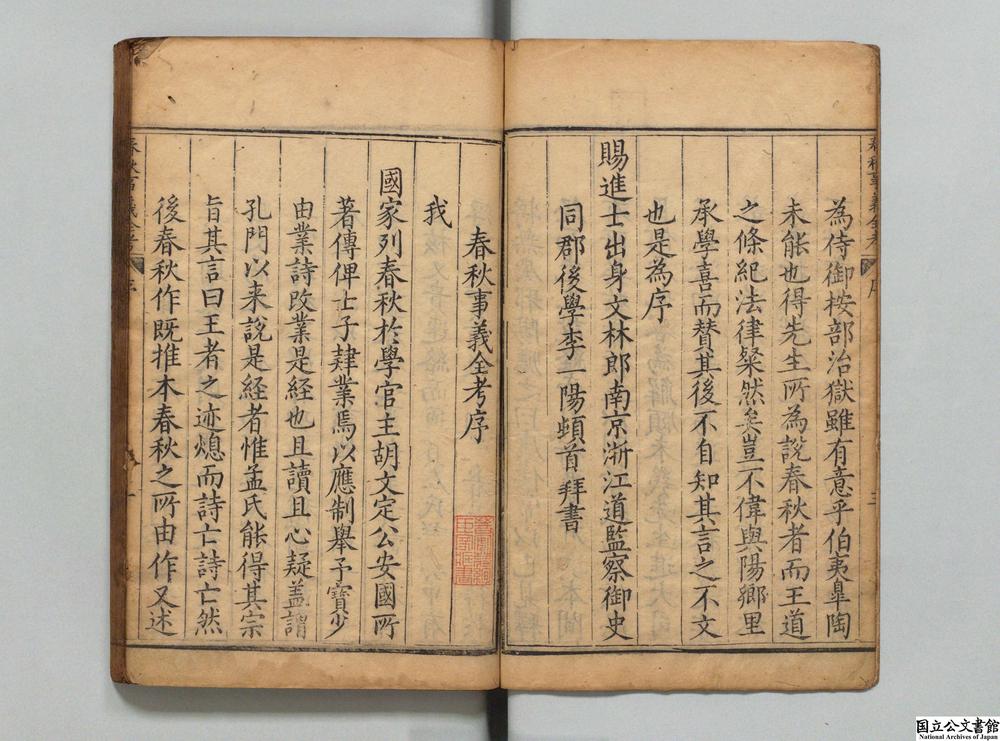 為侍御桉部治獄雖有意乎伯夷臯陶
未能也得先生所為說春秋者而王道
之條紀法律粲然矣豈不偉與陽鄉里
承學喜而賛其後不自知其言之不文
也是為序
賜進士出身文林郎南京浙江道監察御史
同郡後學李一陽頓首拜書
春秋事義全考序
我
國家列春秋於學官主胡文定公安國所
著傳俾士子肄業焉以應制舉予寶少
由業詩改業是經也且讀且心疑盖謂
孔門以来說是経者惟孟氏能得其宗
旨其言曰王者之迹熄而詩亡詩亡然
後春秋作既推本春秋之所由作又述
国立公文書館
National Archives of Japan